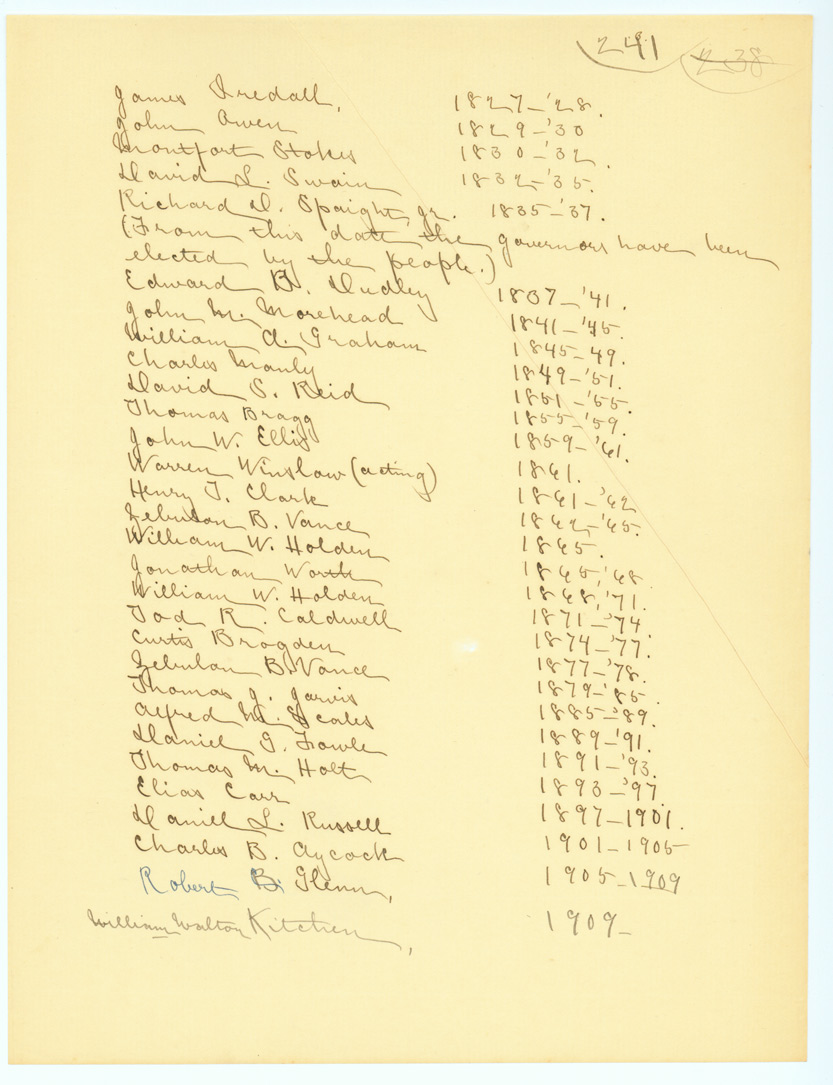 241 238
James Iredall, 1827-'28.
John Owen 1829-'30
Montfort Stokes 1830-'32.
David L. Swain 1832-'35.
Richard D. Spaight, Jr. 1835-'37.
(From this date the governors have been
elected by the people.)
Edward B. Dudley 1837-'41.
John M. Morehead 1841-'45.
William A. Graham 1845-49.
Charles Manly 1849-'51.
David S. Reid 1851-'55.
Thomas Bragg 1855-'59.
John W. Ellis 1859-'61.
Warren Winslow (acting) 1861.
Henry T. Clark 1861-'62
Zebulon B. Vance 1862-'65.
William W. Holden 1865.
Jonathan Worth 1865,'68.
William W. Holden 1868,'71.
Tod R. Caldwell 1871-'74.
Curtis Brogden 1874-'77.
Zebulan B. Vance 1877-'78.
Thomas J. Jarvis 1879-'85.
Alfred M. Scales 1885-'89.
Daniel G. Fowle 1889-'91.
Thomas M. Holt 1891-'93.
Elias Carr 1893-'97.
Daniel L. Russell 1897-1901.
Charles B. Aycock 1901-1905
Robert B. Glenn, 1905-1909
William Walton Kitchen, 1909-